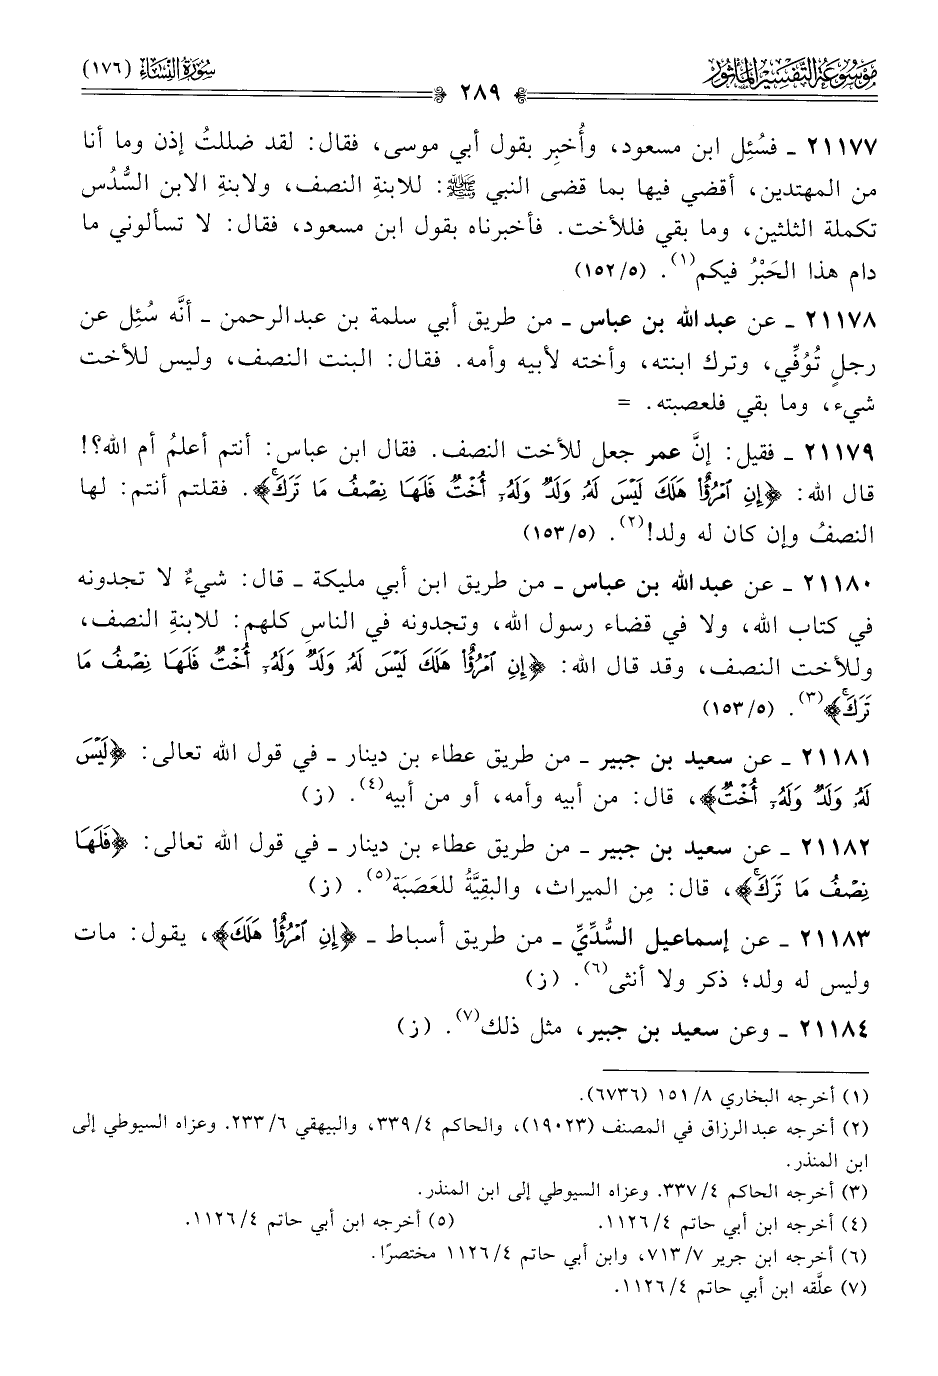 موسوعة التفسير المأثور
٢٨٩
سورة النساء (١٧٦)
٢١١٧٧ ـ فسُئِل ابن مسعود، وأُخبِر بقول أبي موسى، فقال: لقد ضللتُ إذن وما أنا
من المهتدين، أقضي فيها بما قضى النبي ﷺ: للابنةِ النصف، ولابنةِ الابن السُّدُس
تكملة الثلثين، وما بقي فللأخت. فأخبرناه بقول ابن مسعود، فقال: لا تسألوني ما
دام هذا الحَبْرُ فيكم(١). (١٥٢/٥)
٢١١٧٨ ـ عن عبد الله بن عباس ـ من طريق أبي سلمة بن عبد الرحمن ـ أنَّه سُئِل عن
رجلٍ تُوُفِّي، وترك ابنته، وأخته لأبيه وأمه. فقال: البنت النصف، وليس للأخت
شيء، وما بقي فلعصبته. =
٢١١٧٩ ـ فقيل: إنَّ عمر جعل للأخت النصف. فقال ابن عباس: أنتم أعلمُ أم الله؟!
قال الله: ﴿إِنِ ٱمْرُؤٌا۟ هَلَكَ لَيْسَ لَهُۥ وَلَدٌ وَلَهُۥٓ أُخْتٌ فَلَهَا نِصْفُ مَا تَرَكَ﴾. فقلتم أنتم: لها
النصفُ وإن كان له ولد!(٢). (١٥٣/٥)
٢١١٨٠ ـ عن عبد الله بن عباس ـ من طريق ابن أبي مليكة ـ قال: شيءٌ لا تجدونه
في كتاب الله، ولا في قضاء رسول الله، وتجدونه في الناسِ كلهم: للابنةِ النصف،
وللأخت النصف، وقد قال الله: ﴿إِنِ ٱمْرُؤٌا۟ هَلَكَ لَيْسَ لَهُۥ وَلَدٌ وَلَهُۥٓ أُخْتٌ فَلَهَا نِصْفُ مَا
تَرَكَ﴾(٣). (١٥٣/٥)
٢١١٨١ ـ عن سعيد بن جبير ـ من طريق عطاء بن دينار ـ في قول الله تعالى: ﴿لَيْسَ
لَهُۥ وَلَدٌ وَلَهُۥٓ أُخْتٌ﴾، قال: من أبيه وأمه، أو من أبيه(٤). (ز)
٢١١٨٢ ـ عن سعيد بن جبير ـ من طريق عطاء بن دينار ـ في قول الله تعالى: ﴿فَلَهَا
نِصْفُ مَا تَرَكَ﴾، قال: مِن الميراث، والبقيَّةُ للعَصَبَة(٥). (ز)
٢١١٨٣ ـ عن إسماعيل السُّدِّيِّ ـ من طريق أسباط ـ ﴿إِنِ ٱمْرُؤٌا۟ هَلَكَ﴾، يقول: مات
وليس له ولد؛ ذكر ولا أنثى(٦). (ز)
٢١١٨٤ ـ وعن سعيد بن جبير، مثل ذلك(٧). (ز)
(١) أخرجه البخاري ٨/ ١٥١ (٦٧٣٦).
(٢) أخرجه عبد الرزاق في المصنف (١٩٠٢٣)، والحاكم ٤/ ٣٣٩، والبيهقي ٦/ ٢٣٣. وعزاه السيوطي إلى
ابن المنذر.
(٣) أخرجه الحاكم ٤/ ٣٣٧. وعزاه السيوطي إلى ابن المنذر.
(٤) أخرجه ابن أبي حاتم ٤/ ١١٢٦. (٥) أخرجه ابن أبي حاتم ٤/ ١١٢٦.
(٦) أخرجه ابن جرير ٧/ ٧١٣، وابن أبي حاتم ٤/ ١١٢٦ مختصرًا.
(٧) علَّقه ابن أبي حاتم ٤/ ١١٢٦.